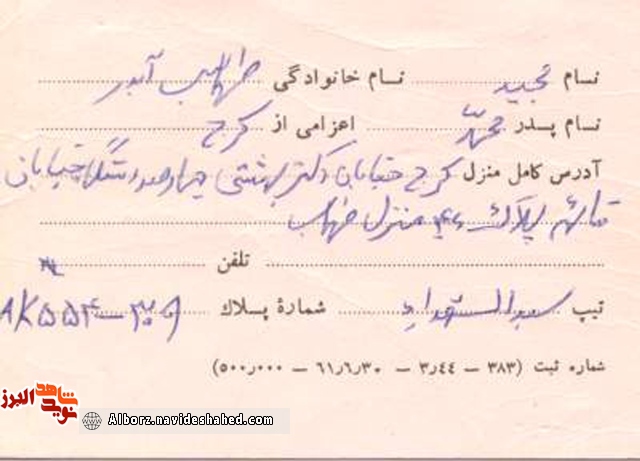 نام مجید نام خانوادگی طالب آبدر
نام پدر محمد اعزامی از کرج
آدرس کامل منزل کرج خیابان دکتر بهشتی چهارصد دستگاه خیابان
قائم پلاک منزل
تلفن
تیپ سیدالشهداء شمارهٔ پلاك AK ۵۵۴ - ۳۰۹
شماره ثبت (۳۸۳ - ۳٫۴۴ - ۶۱٫۶٫۳۰ - ۵۰۰٫۰۰۰)
شاهد نوید البرز
Alborz.navideshahed.com